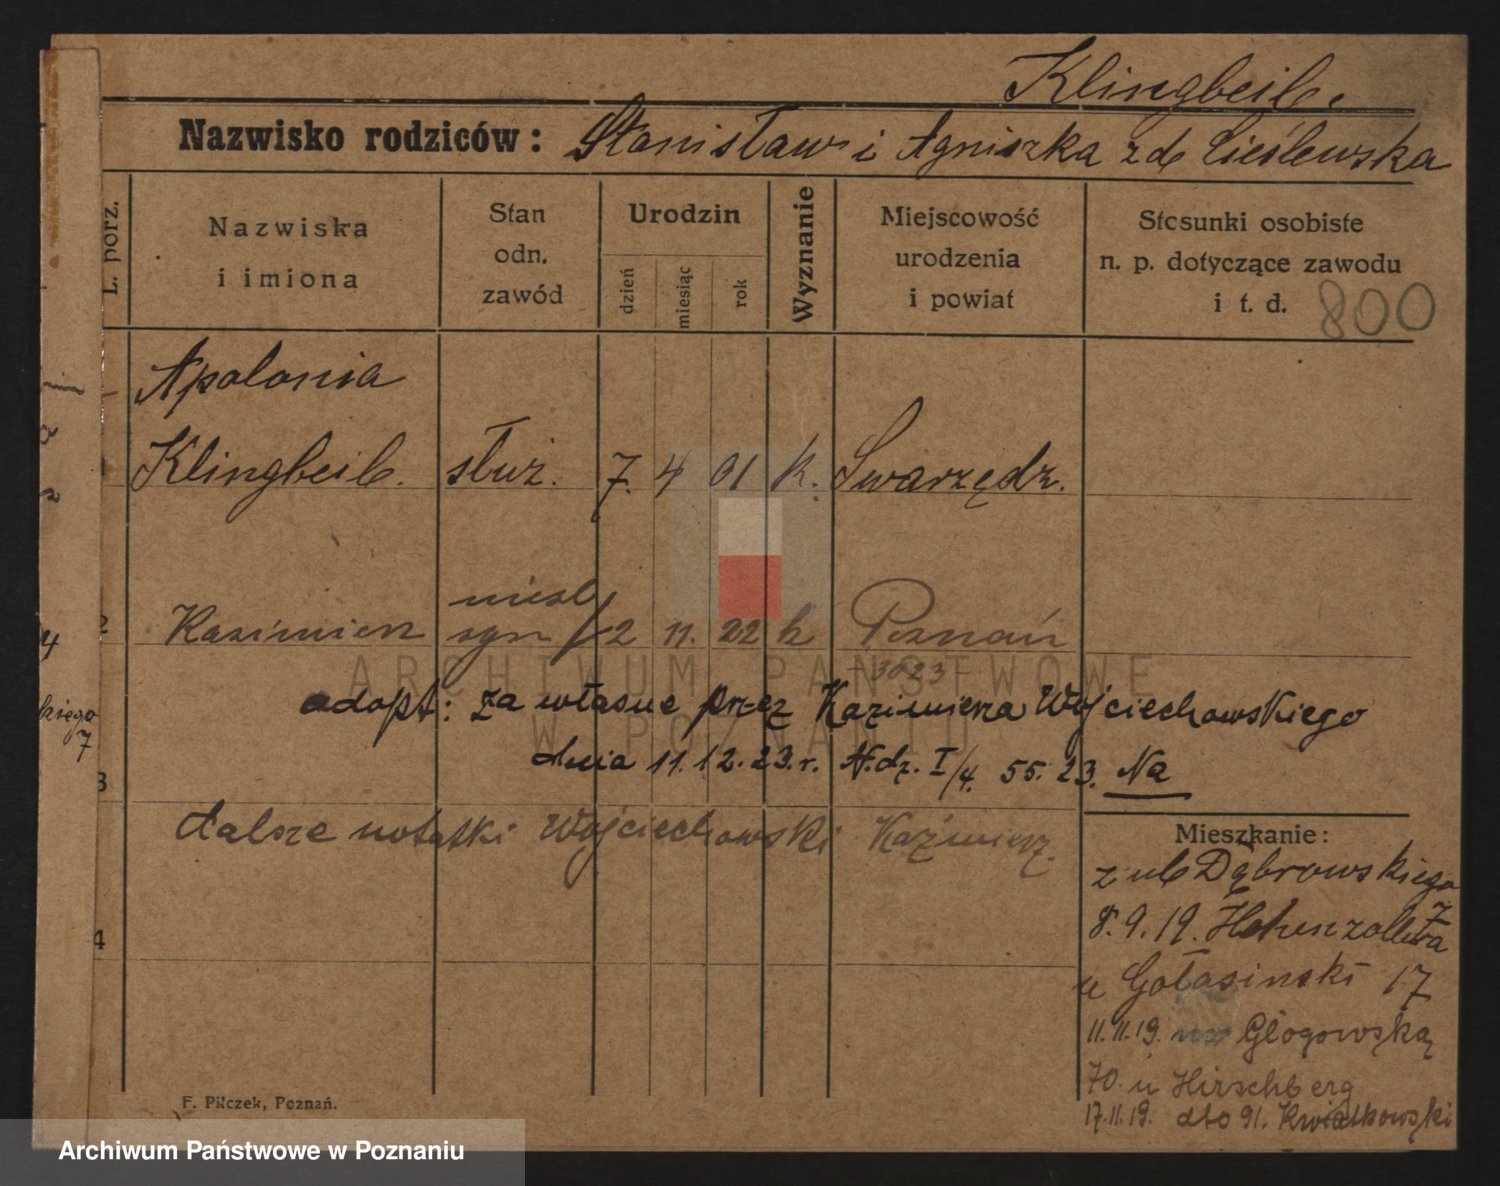 Klingbeil.
Nazwisko rodziców: Stanisław i Agniszka z d. Cieślewska
L. porz.
Nazwiska i imiona
Stan odn. zawód
Urodzin
dzień miesiąc rok
Wyznanie
Miejscowość urodzenia i powiat
Stosunki osobiste n. p. dotyczące zawodu i t. d. 800
Apolonia
Klingbeil. służ. 7. 4 01 k. Swarzędz.
2 Kazimierz nieśl syn 2 11. 22 k Poznań
3023
adopt: za własne przez Kazimierza Wojciechowskiego
dnia 11.12.23.r. N.dz. I/4. 55. 23. Na
3
dalsze notatki Wojciechowski Kaźmierz.
4
Mieszkanie:
z ul Dąbrowskiego 7
8.9.19. Hohenzollerna
u Gołasinski 17
11.11.19. Głogowską
70. u Hirschberg
17.11.19. dto 91. Kwiatkowski
kiego
7
4
F. Pilczek, Poznań.
ARCHIWUM PAŃSTWOWE
W POZNANIU
Archiwum Państwowe w Poznaniu